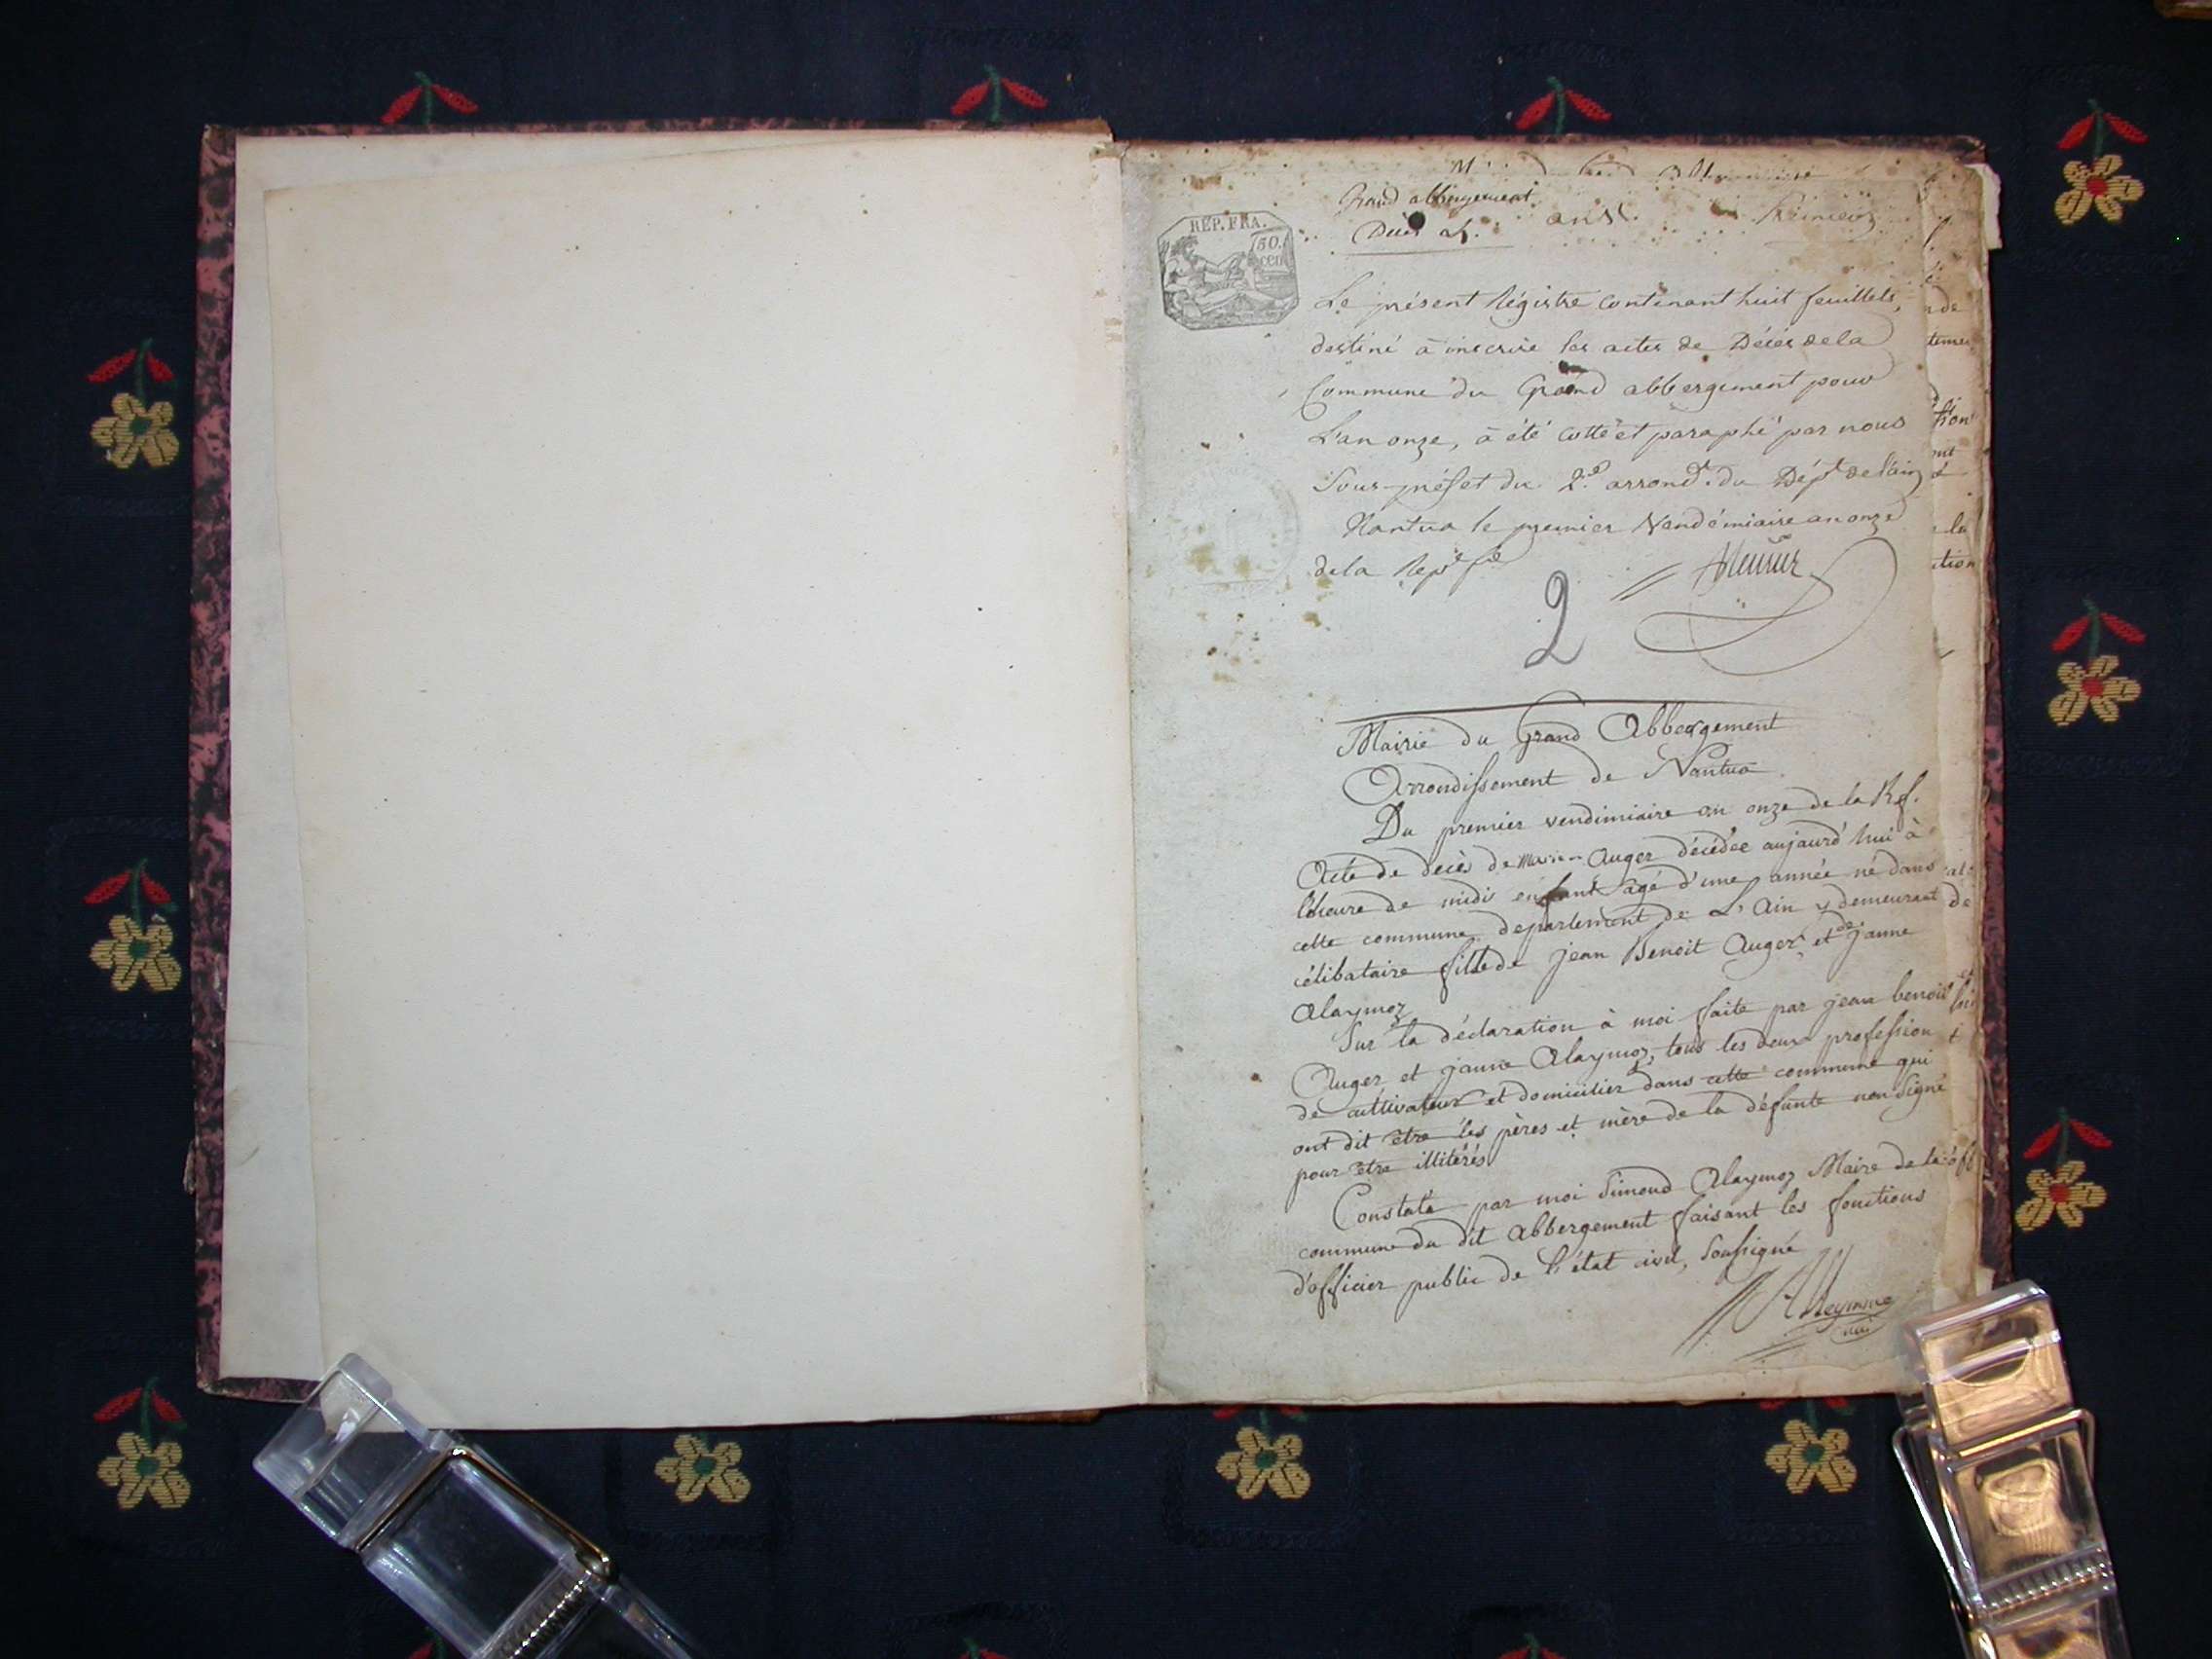 Grand abbergement
REP. FRA.
50.
cen
Décès
Le présent Régistre contenant huit feuillets,
destiné à inscrire les actes de Décès de la
Commune du Grand abbergement pour
L'an onze, à été cotté et paraphé par nous
Sous-préfet du 2.e arrond.t du Dép.t de l'ain
Nantua le premier Vendémiaire an onze
de la
2
Mairie du Grand Abbergement
Arrondissement de Nantua
Du premier vendimiaire an onze de la Rep.
Acte de decès de Auger décédée aujourd'hui à
l'heure de midi enfant agé d'une année né dans
cette commune departement de L'Ain y demeurant
célibataire fille de jean Benoit Auger et de janne
Alaymoz
Sur la déclaration à moi faite par jean benoit
Auger et janne Alaymoz, tous les deux profession
de cultivateur et domicilier dans cette commune qui
ont dit être les pères et mère de la défunte non Signé
pour être illitérés
Constaté par moi Simond Alaymoz Maire de la
commune du dit Abbergement faisant les fonctions
d'officier public de l'état civil, Soussigné